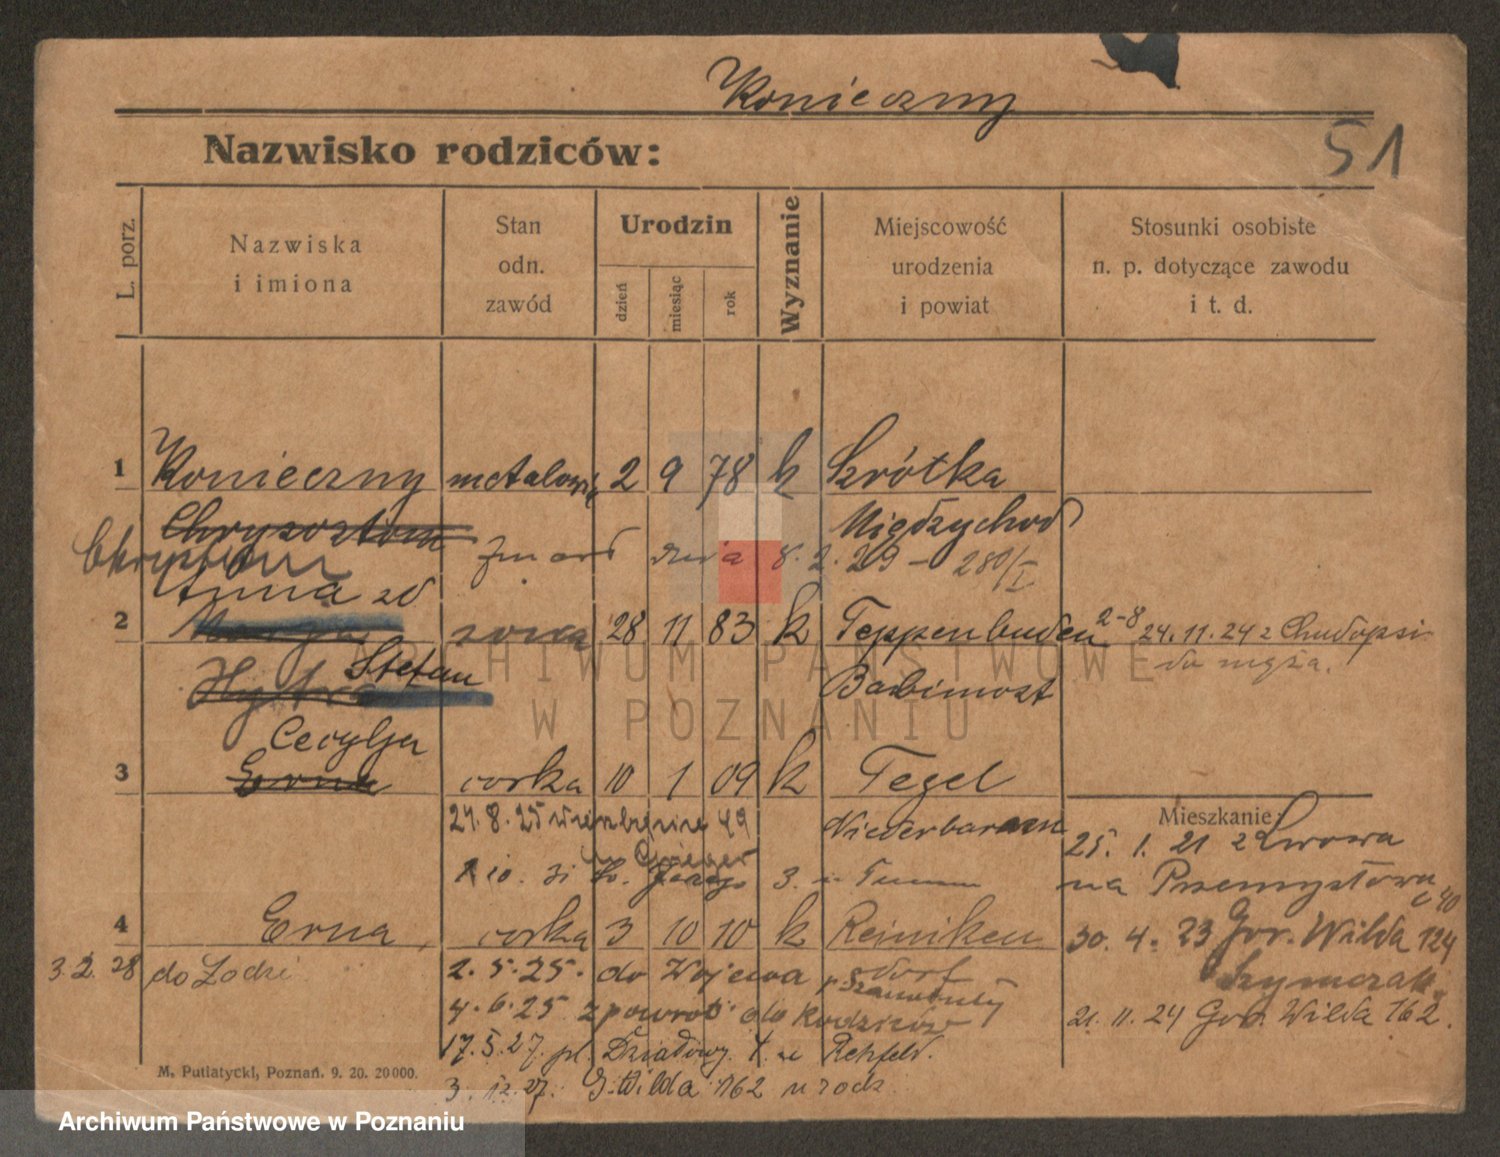 Konieczny
51
Nazwisko rodziców:
L. porz.
Nazwiska
i imiona
Stan
odn.
zawód
Urodzin
dzień
miesiąc
rok
Wyznanie
Miejscowość
urodzenia
i powiat
Stosunki osobiste
n. p. dotyczące zawodu
i t. d.
1 Konieczny metalowię 2 9 78 k Szrótka
Chryzostom Międzychod
zmarł dnia 8.2.29 – 280/I
Anna zd
2 zona 28 11 83 k Teppenbuden 2-8 24.11.24 z Chudopsi
do męża.
Stefan Babimost
Cecylja
3 Erna corka 10 1 09 k Tegel
Mieszkanie:
24.8.25 49 Niederbarnim 25. 1. 21 z Lwowa
na Przemysłowa 40
4 Erna, corka 3 10 10 k Reiniken 30. 4. 23 Gor. Wilda 124
3.2.28 do Łodzi 2.5.25. do dorf Szymczak
Szamotuły
4.6.25 z powrot do Rodziców 21. 11. 24 Gor. Wilda 162.
17.5.27. pl. Działowy. Rehfeld.
3.12.27. G. Wilda 162 u rodz
M. Putiatycki, Poznań. 9. 20. 20000.
ARCHIWUM PAŃSTWOWE
W POZNANIU
Archiwum Państwowe w Poznaniu